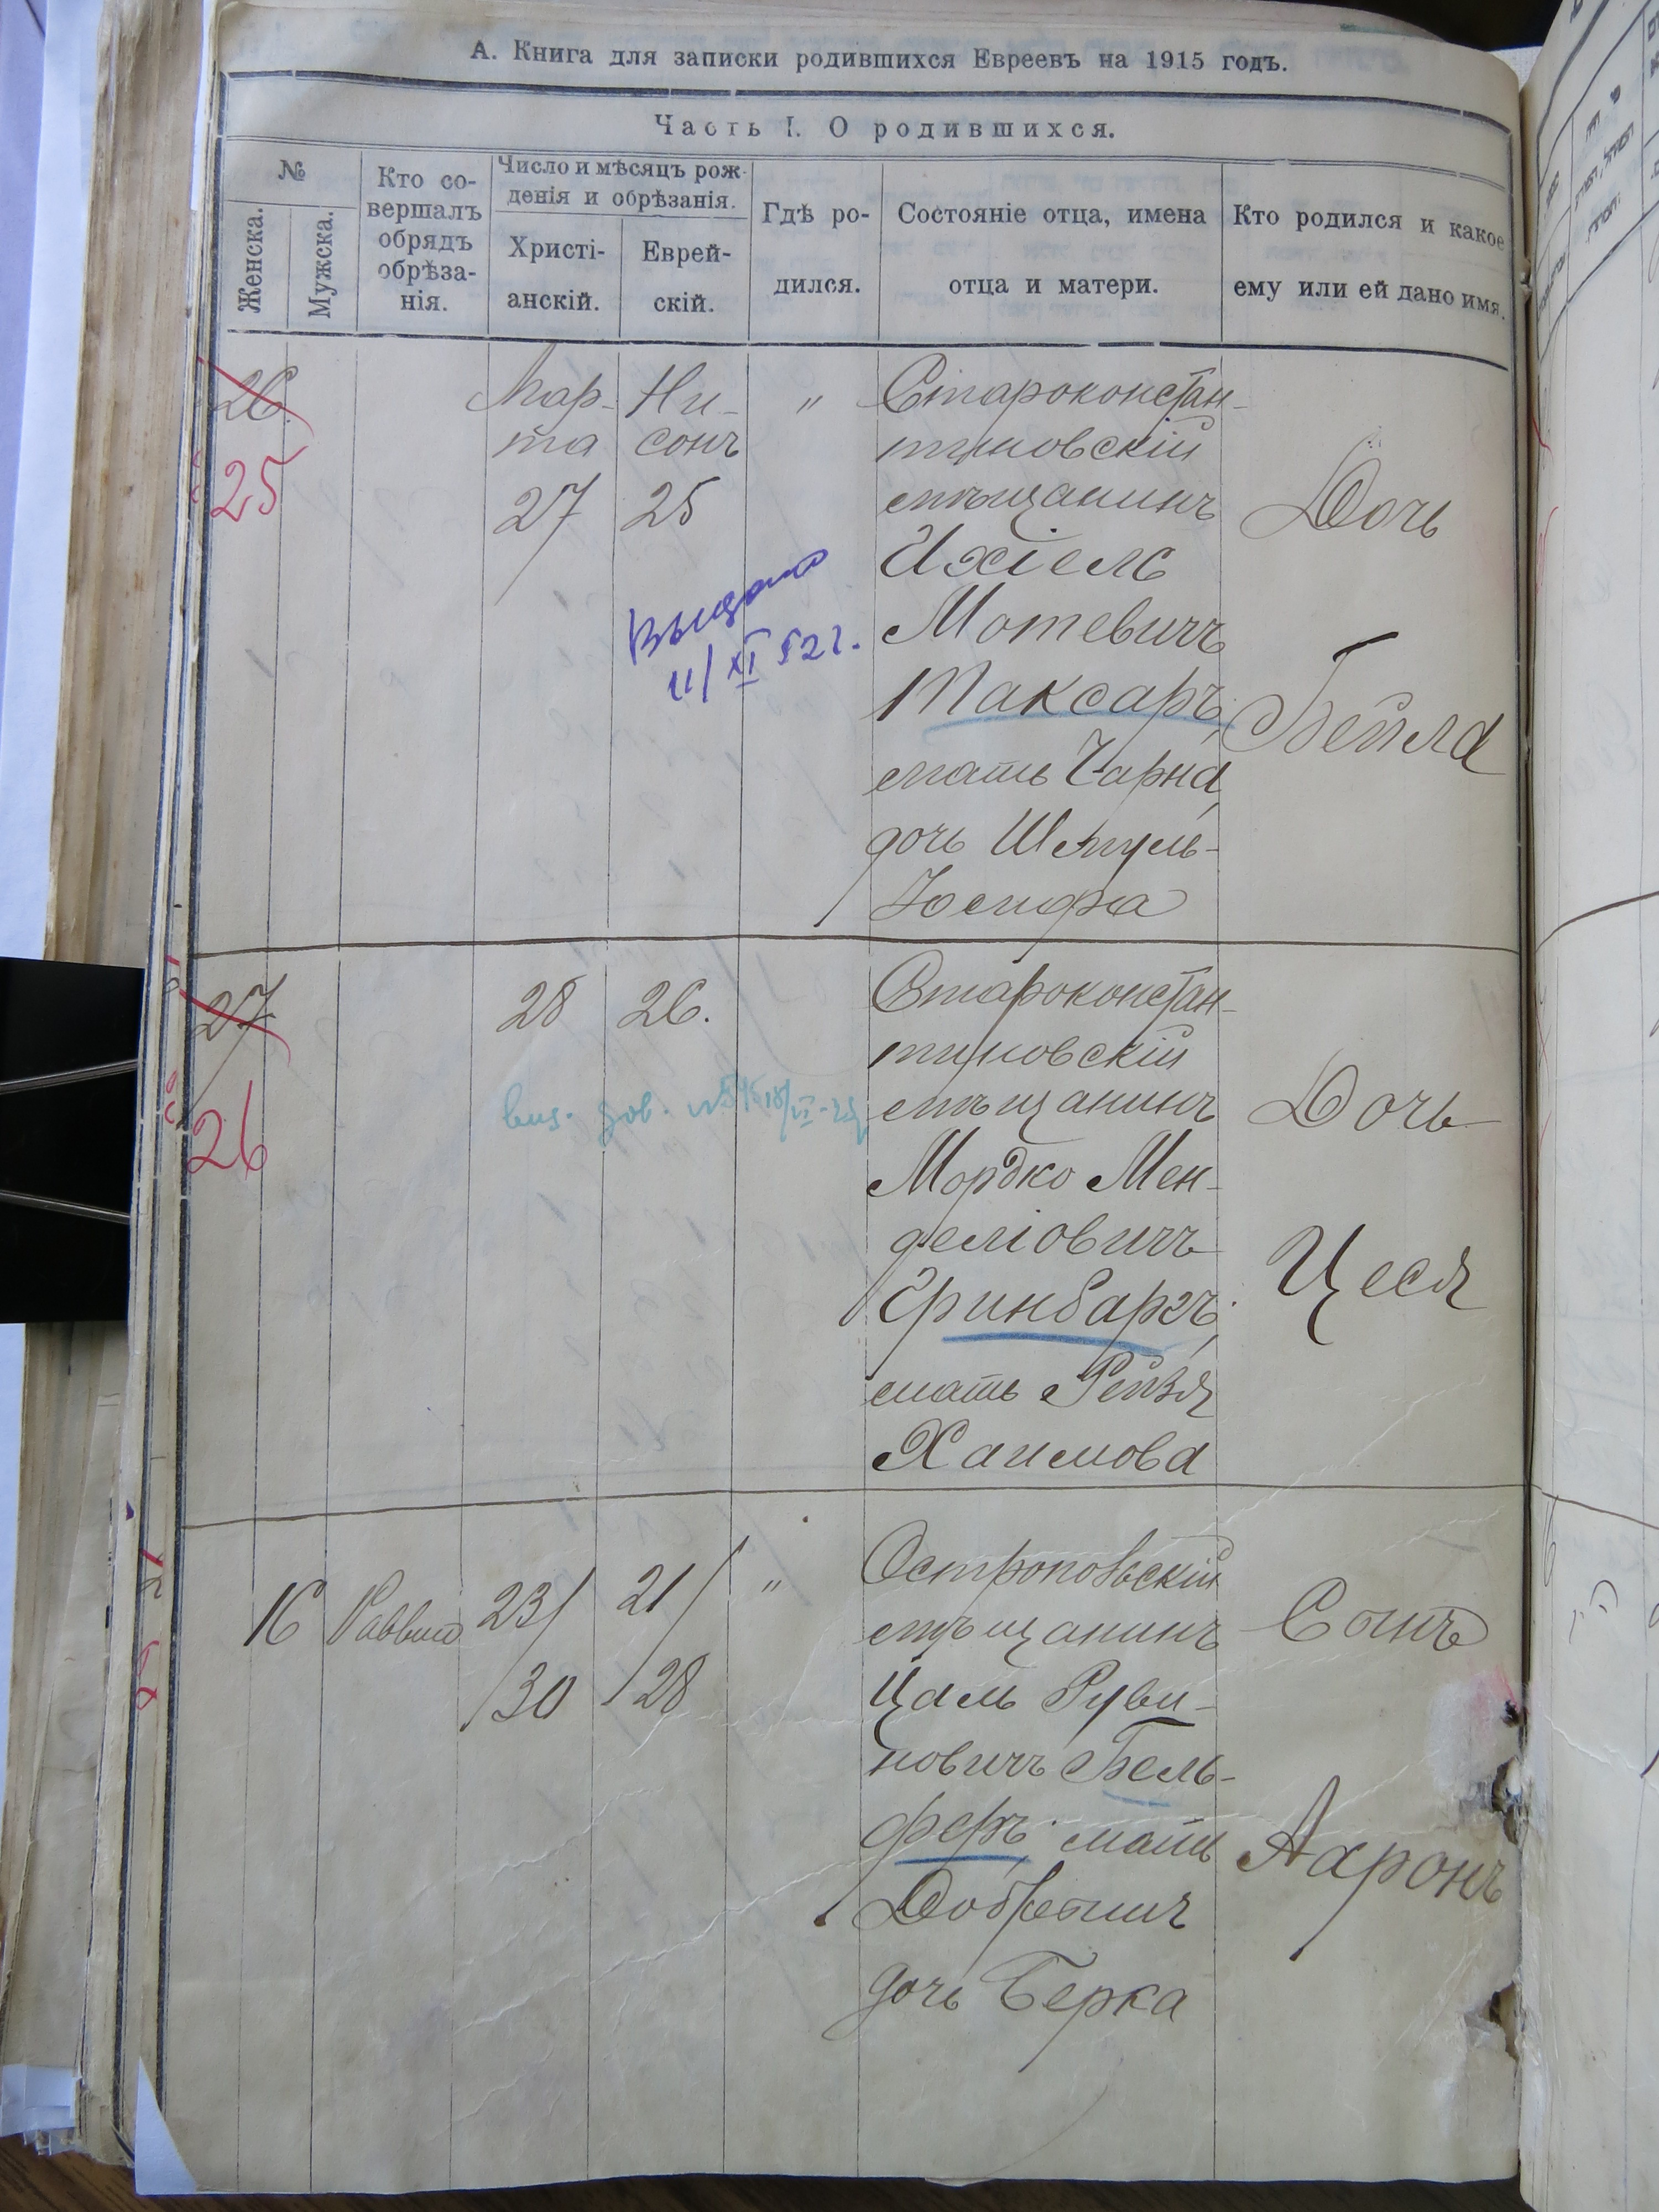 А. Книга для записки родившихся Евреевъ на 1915 годъ.
Часть I. О родившихся.
№
Женска.
Мужска.
Кто со-
вершалъ
обрядъ
обрѣза-
нія.
Число и мѣсяцъ рож-
денія и обрѣзанія.
Христі-
анскій.
Еврей-
скій.
Гдѣ ро-
дился.
Состояніе отца, имена
отца и матери.
Кто родился и какое
ему или ей дано имя.
26
25
Мар-
та
27
Ни-
сонъ
25
"
Выдано
11/XI 52 г.
Староконстан-
тиновскій
мѣщанинъ
Ихіель
Мотевичъ
Таксаръ,
мать Чарна,
дочь Шмуль-
Іосифа
Дочь
Бейла
27
26
28
26.
Староконстан-
тиновскій
мѣщанинъ
Мордко Мен-
деліовичъ
Гринбаргъ,
мать Рейзя
Хаимова
Дочь
Цеся
16
Раввин
23/
/30
21/
/28
"
Остропольскій
мѣщанинъ
Цаль Руви-
новичъ Бель-
феръ, мать
дочь Берка
Сынъ
Ааронъ